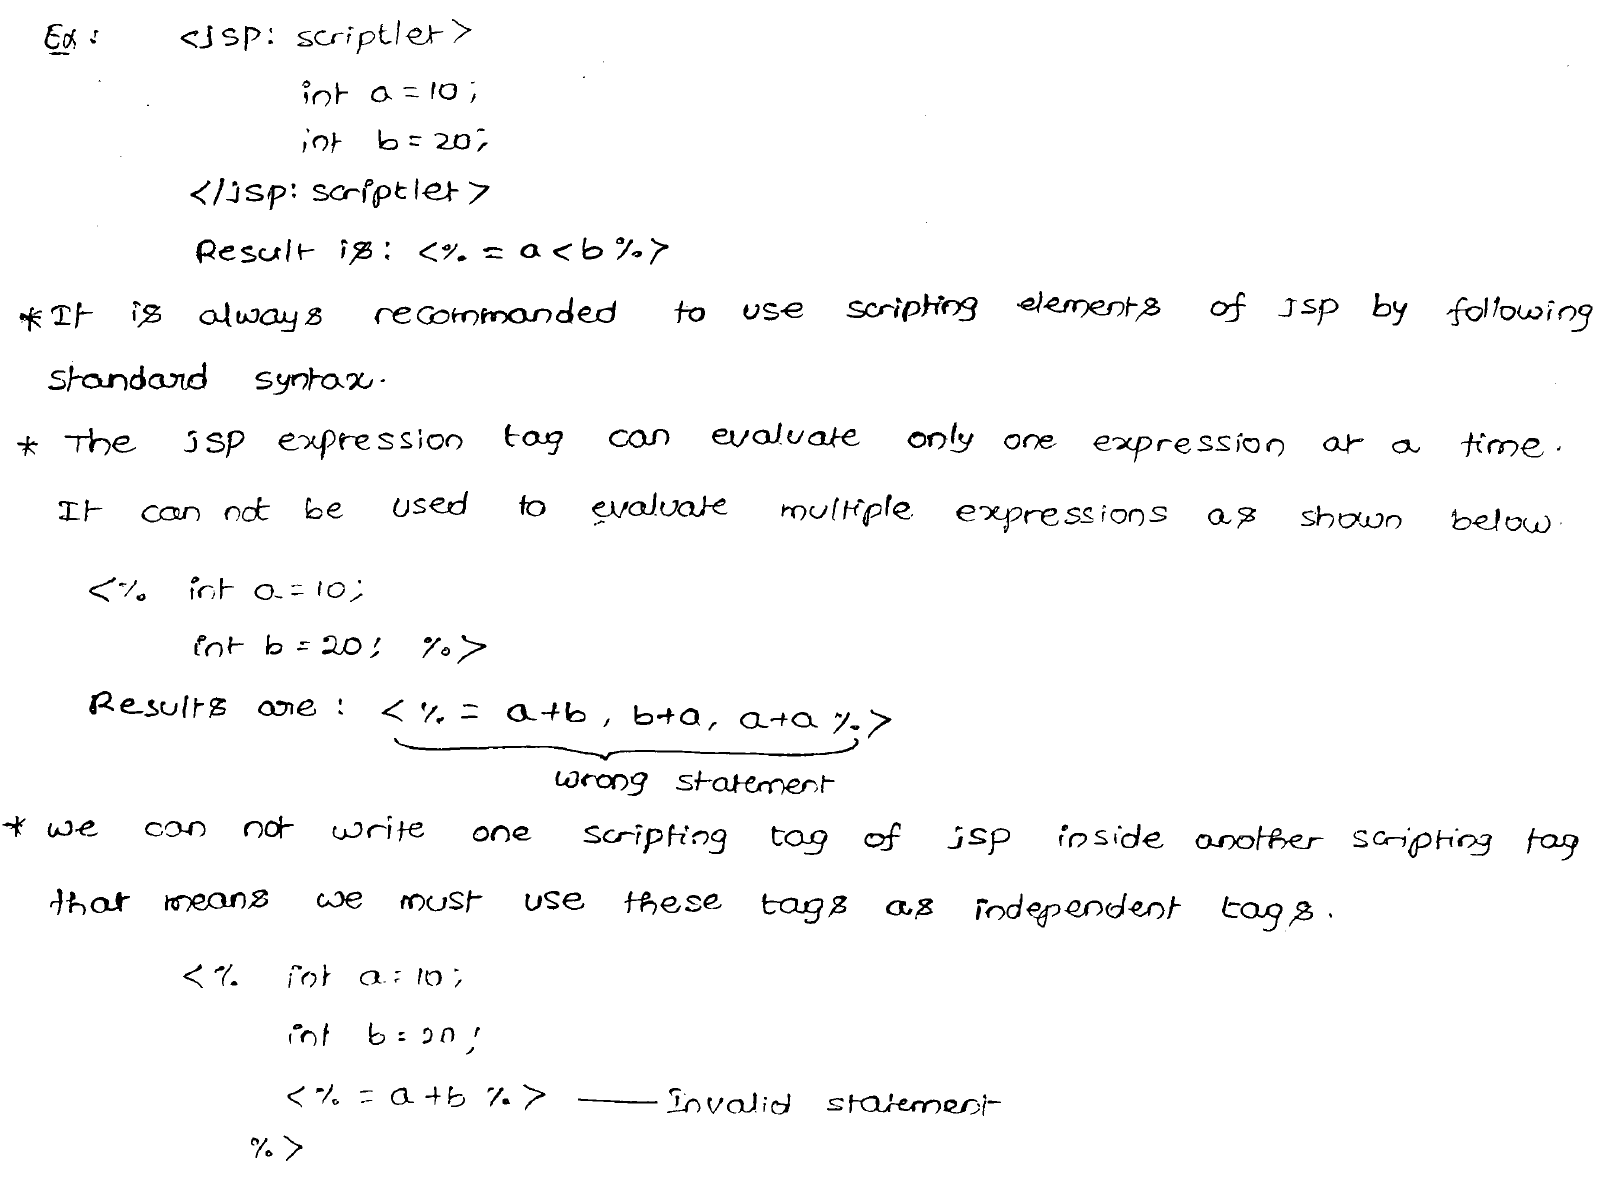 Ex : <jsp: scriptlet>
int a = 10 ;
int b = 20 ;
</jsp: scriptlet>
Result is : <% = a < b %>
* It is always recommanded to use scripting elements of jsp by following
standard syntax.
* The jsp expression tag can evaluate only one expression at a time.
It can not be used to evaluate multiple expressions as shown below.
<% int a = 10 ;
int b = 20 ; %>
Results are : <% = a+b , b+a, a+a %>
wrong statement
* we can not write one scripting tag of jsp inside another scripting tag
that means we must use these tags as independent tags.
<% int a = 10 ;
int b = 20 ;
<% = a + b %> — Invalid statement
%>